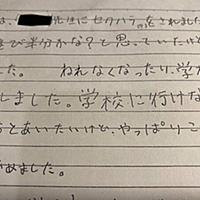 は、 先生にセクハラをされました
び半分かな?と思っていたけ
した。 ねれなくなったり、学
しました。学校に行けな
とあいたいけど、やっぱりこ
めました。